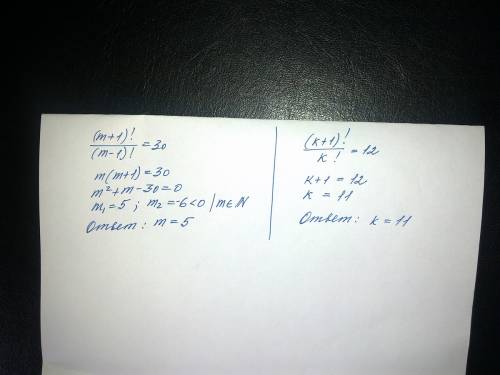 (m+1)!/(m-1)! = 30
m(m+1) = 30
m²+m-30=0
m₁=5 ; m₂=-6<0 | m∈N
Ответ: m=5
(k+1)!/k! = 12
k+1 = 12
k = 11
Ответ: k=11